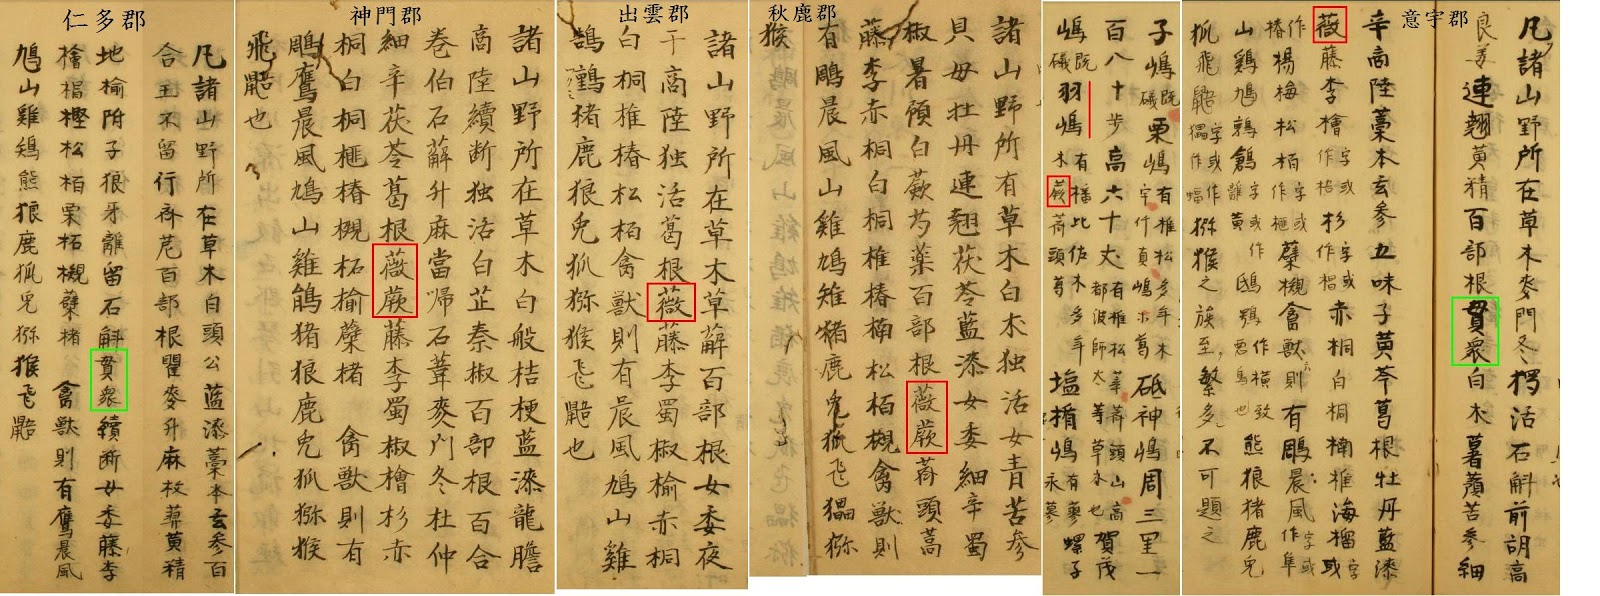 意宇郡
凡諸山野所在草木麥門冬獨活石斛前胡高
良姜連翹黄精百部根貫衆白朮暑蕷苦參細
辛商陸藁本玄參五味子黄芩葛根牡丹藍漆
薇藤李檜字或作梧杉字或作椙赤桐白桐楠椎海榴字或
作椿楊梅松栢字或作榧蘗槻禽獸則有鵰晨風字或作隼
山鷄鳩鶉鶬字或作離黄鴟鴞作横致悪鳥也熊狼猪鹿兎
狐飛鼯字或作猵作蝠猕猴之族至繁多不可題之
子嶋既礒粟嶋有椎松多年木宇竹真前等葛砥神嶋周三里一
百八十歩高六十丈有椎松莘薺頭山高都波師太等草木也賀茂
嶋既礒羽嶋有椿比佐木多年木蕨薺頭蒿塩楯嶋有蓼螺子永蓼
秋鹿郡
諸山野所有草木白朮独活女青苦參
貝母牡丹連翹茯苓藍漆女委細辛蜀
椒暑蕷白蘞芍藥百部根薇蕨薺頭蒿
藤李赤桐白桐椎椿楠松栢槻禽獸則
有鵰晨風山雞鳩雉猪鹿兎狐飛猵猕
猴
出雲郡
諸山野所在草木草薢百部根女委夜
干商陸独活葛根薇藤李蜀椒榆赤桐
白桐椎椿松栢禽獸則有晨風鳩山雞
鵠鶫猪鹿狼兎狐猕猴飛鼯也
神門郡
諸山野所在草木白般桔梗藍漆龍膽
商陸續断独活白芷秦椒百部根百合
巻伯石薢升麻當帰石葦麥門冬杜仲
細辛茯苓葛根薇蕨藤李蜀椒檜杉赤
桐白桐榧椿槻柘榆蘗楮禽獸則有
鵰鷹晨風鳩山雞鶉猪狼鹿兎狐猕猴
飛鼯也
仁多郡
凡諸山野所在草木白頭公藍漆藁本玄參百
合王不留行薺苨百部根瞿麥升麻枚葜黄精
地榆附子狼牙離留石斛貫衆續断女委藤李
檜椙樫松栢栗柘槻蘗楮禽獸則有鷹晨風
鳩山雞鳮熊狼鹿狐兎猕猴飛鼯